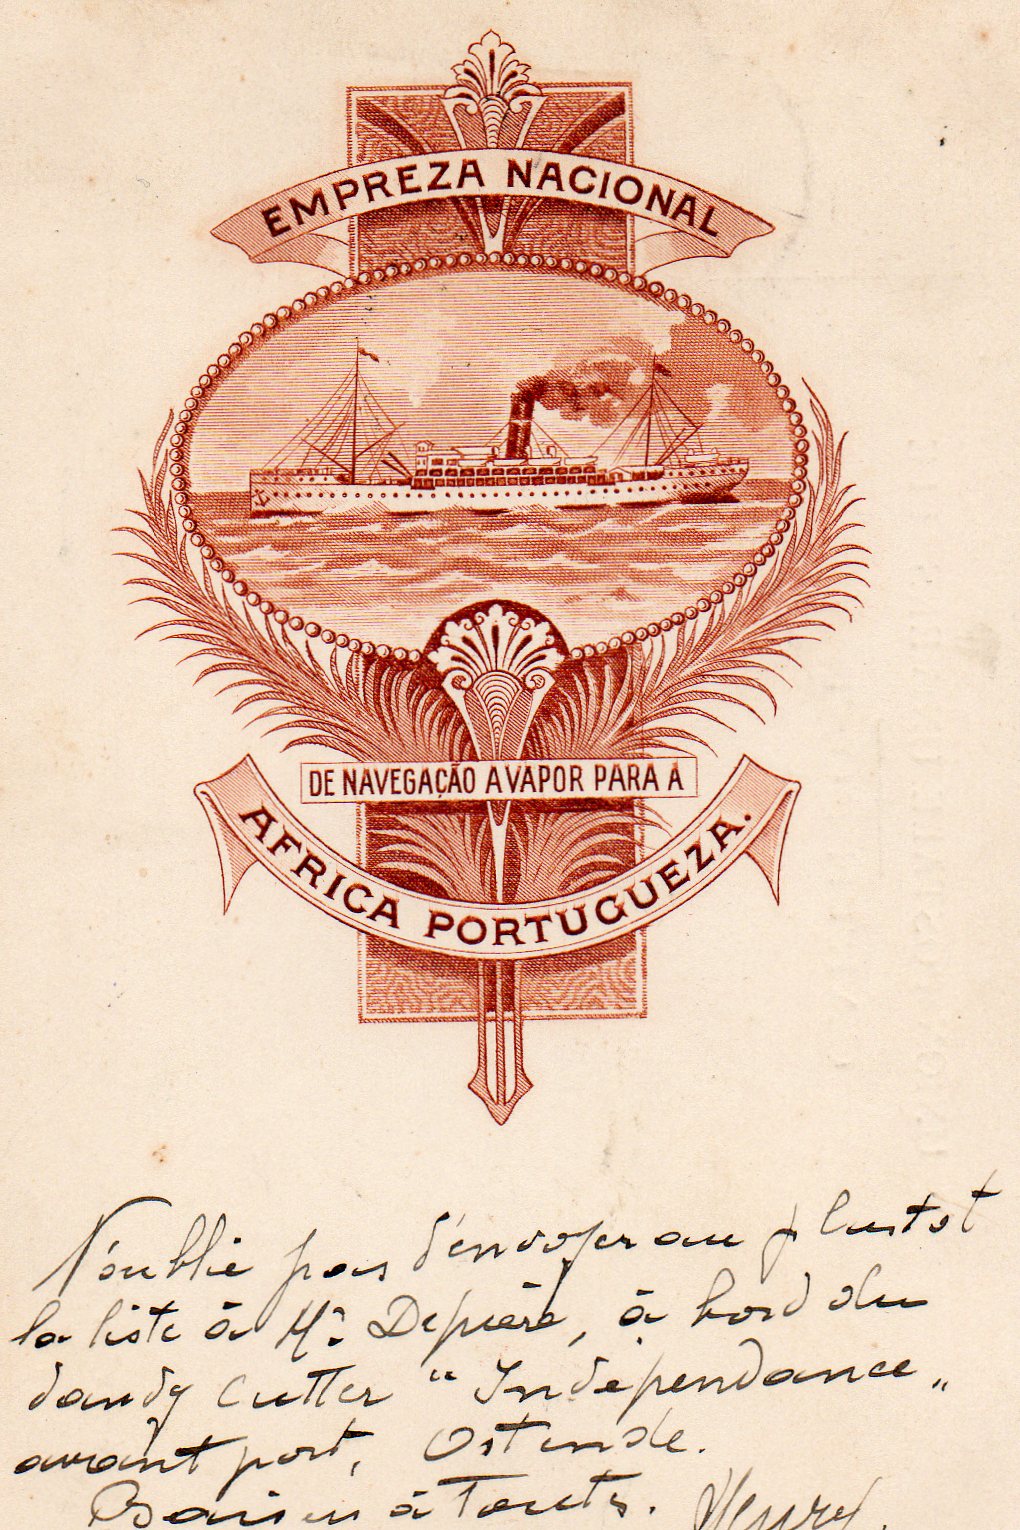 EMPREZA NACIONAL
DE NAVEGAÇÃO A VAPOR PARA A
AFRICA PORTUGUEZA.
N'oublie pas d'envoyer au plustot
la liste à Mr Depière, à bord du
dandy cutter "Indépendance„
avant port, Ostende.
à toutes. Henry.